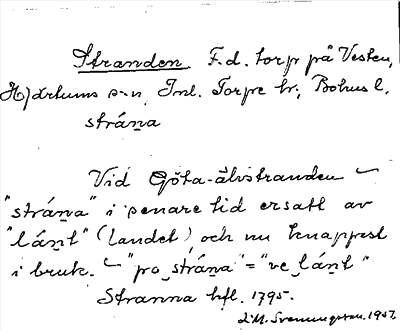 Stranden. F.d. torp på Vesten,
Hjärtums s-n, Inl. Torpe hr., Bohus l.
strána
Vid Göta-älvstranden –
"strána" i senare tid ersatt av
"lánt" (landet) och nu knappast
i bruk. – "pro strána" = "ve lánt"
Stranna hfl. 1795.
M. Svenungsson. 1957.